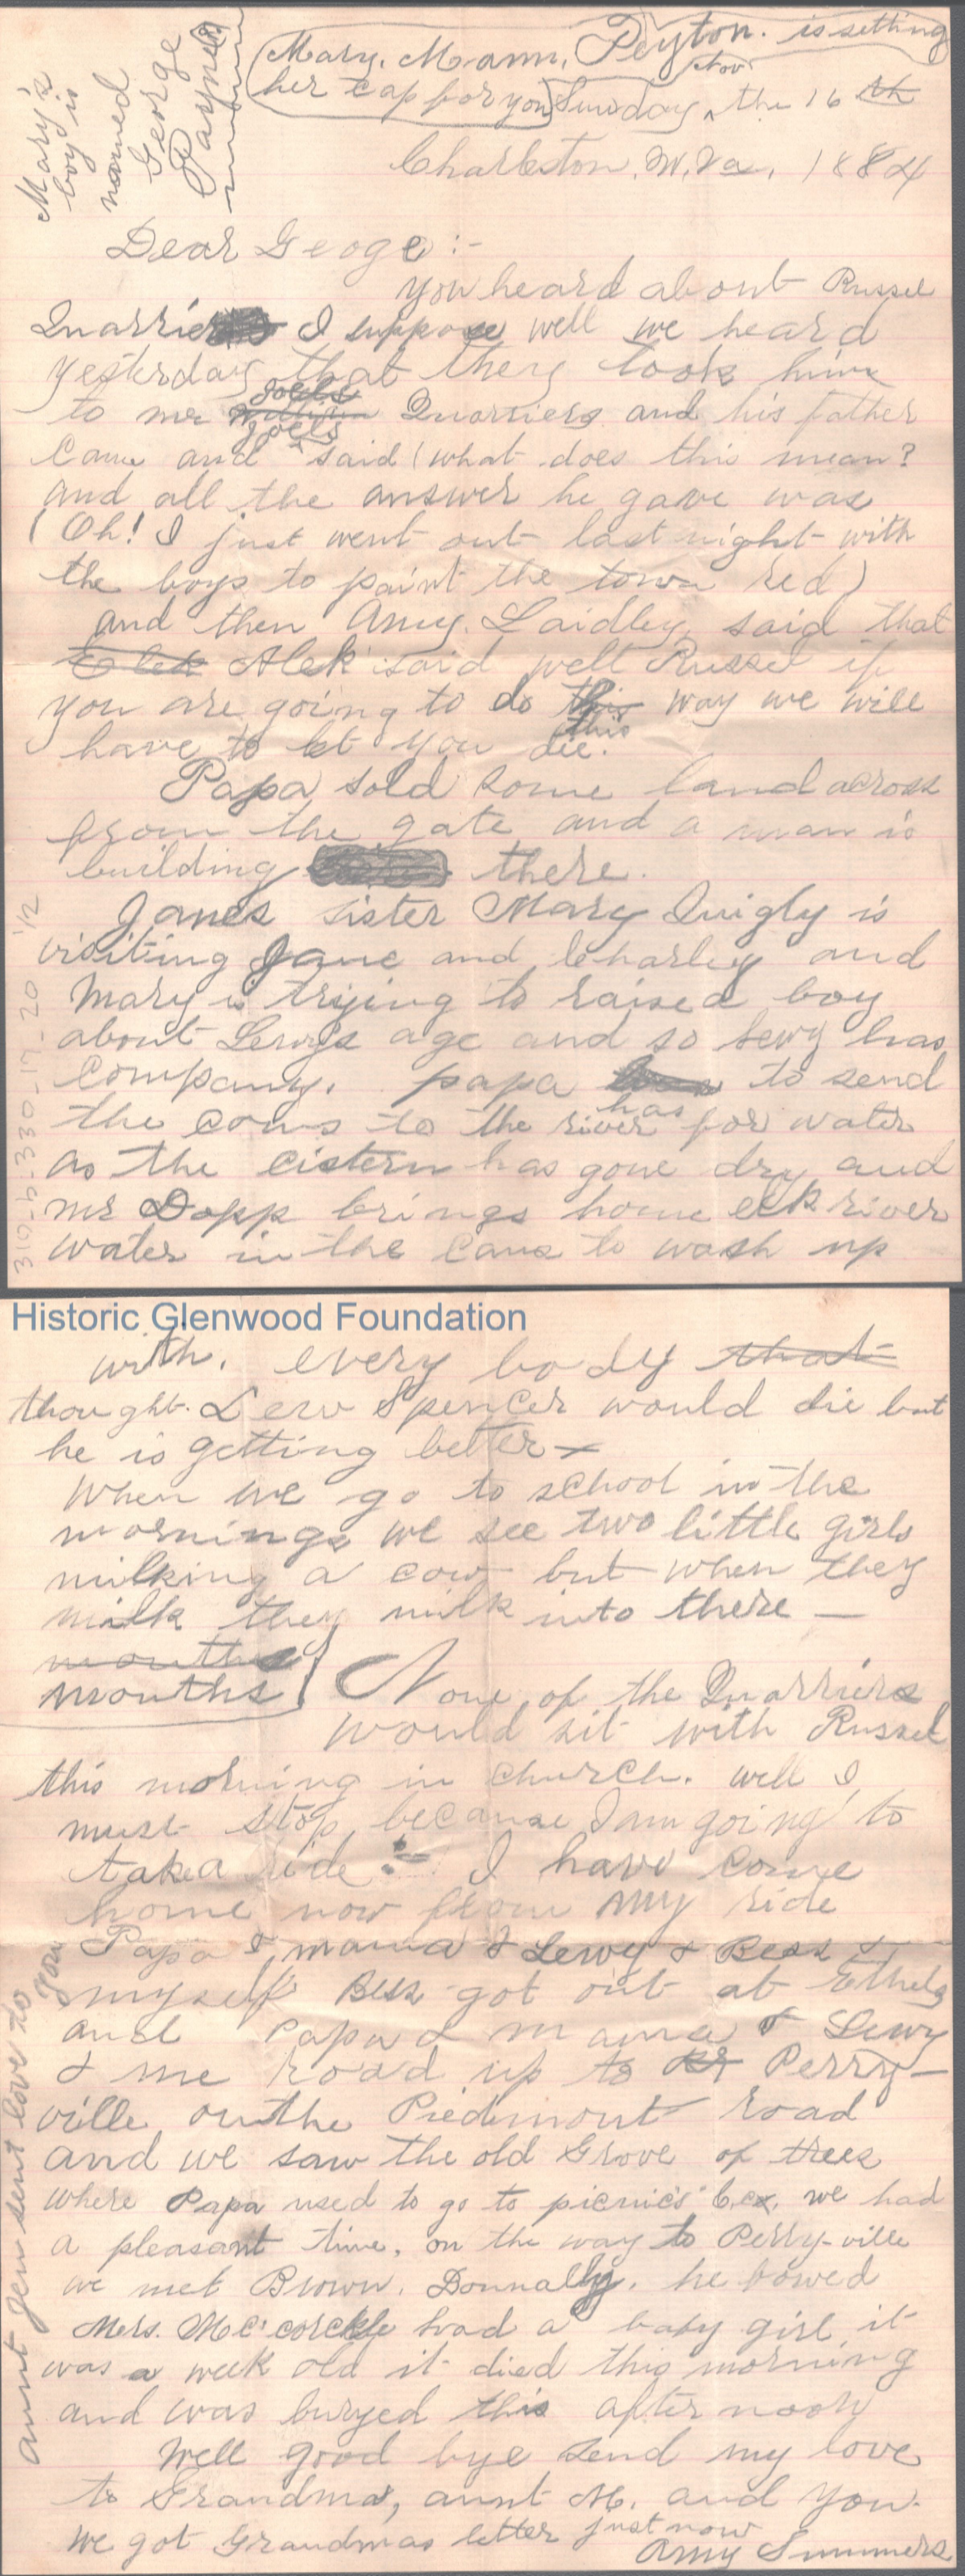 Mary's
boy is
named
George
Payne
Mary. Mann. Peyton. is setting
her cap for you Sunday, Nov the 16 th
Charleston, W. Va. 1884
Dear Geoge :-
You heard about Russel
Quarrier I suppose well we heard
yesterday that they took him
to mr Joels Quarriers and his father
Came and Joels said (what does this mean?
and all the answer he gave was
(Oh! I just went out last night with
the boys to paint the town red)
and then Amy. Laidley, said that
Elek Alek said well Russel if
you are going to do this way we will
this
have to let you die.
Papa sold some land across
from the gate and a man is
building there.
Janes sister Mary Quigly is
visiting Jane and Charley and
Mary is trying to raised boy
about Lewys age and so Lewy has
Company. papa has to send
the cows to the river for water
as the cistern has gone dry and
mr Dopp brings home elk river
water in the cans to wash up
310-b-330-17-20 1/2
Historic Glenwood Foundation
with. every body that
thought Lew Spencer would die but
he is getting better
When we go to school in the
mornings we see two little girls
milking a cow but when they
milk they milk into there —
mouths
mouths
None of the Quarriers
would sit with Russel
this morning in church. well I
must stop because I am going to
take a ride :- I have come
home now from my ride
Papa & mama & Lewy & Bess &
myself Bess got out at Ethels
and Papa & mama & Lewy
& me road up to Perry-
ville on the Piedmont road
and we saw the old Grove of trees
where Papa used to go to picnics &c. we had
a pleasant time. on the way to Perry-ville
we met Brown. Donnally. he bowed
Mrs. Mc'corckle had a baby girl it
was a week old it died this morning
and was buryed this after noon
Well good bye send my love
to Grandma, aunt M. and you.
We got Grandmas letter just now
Amy Summers
aunt Jen sent love to you